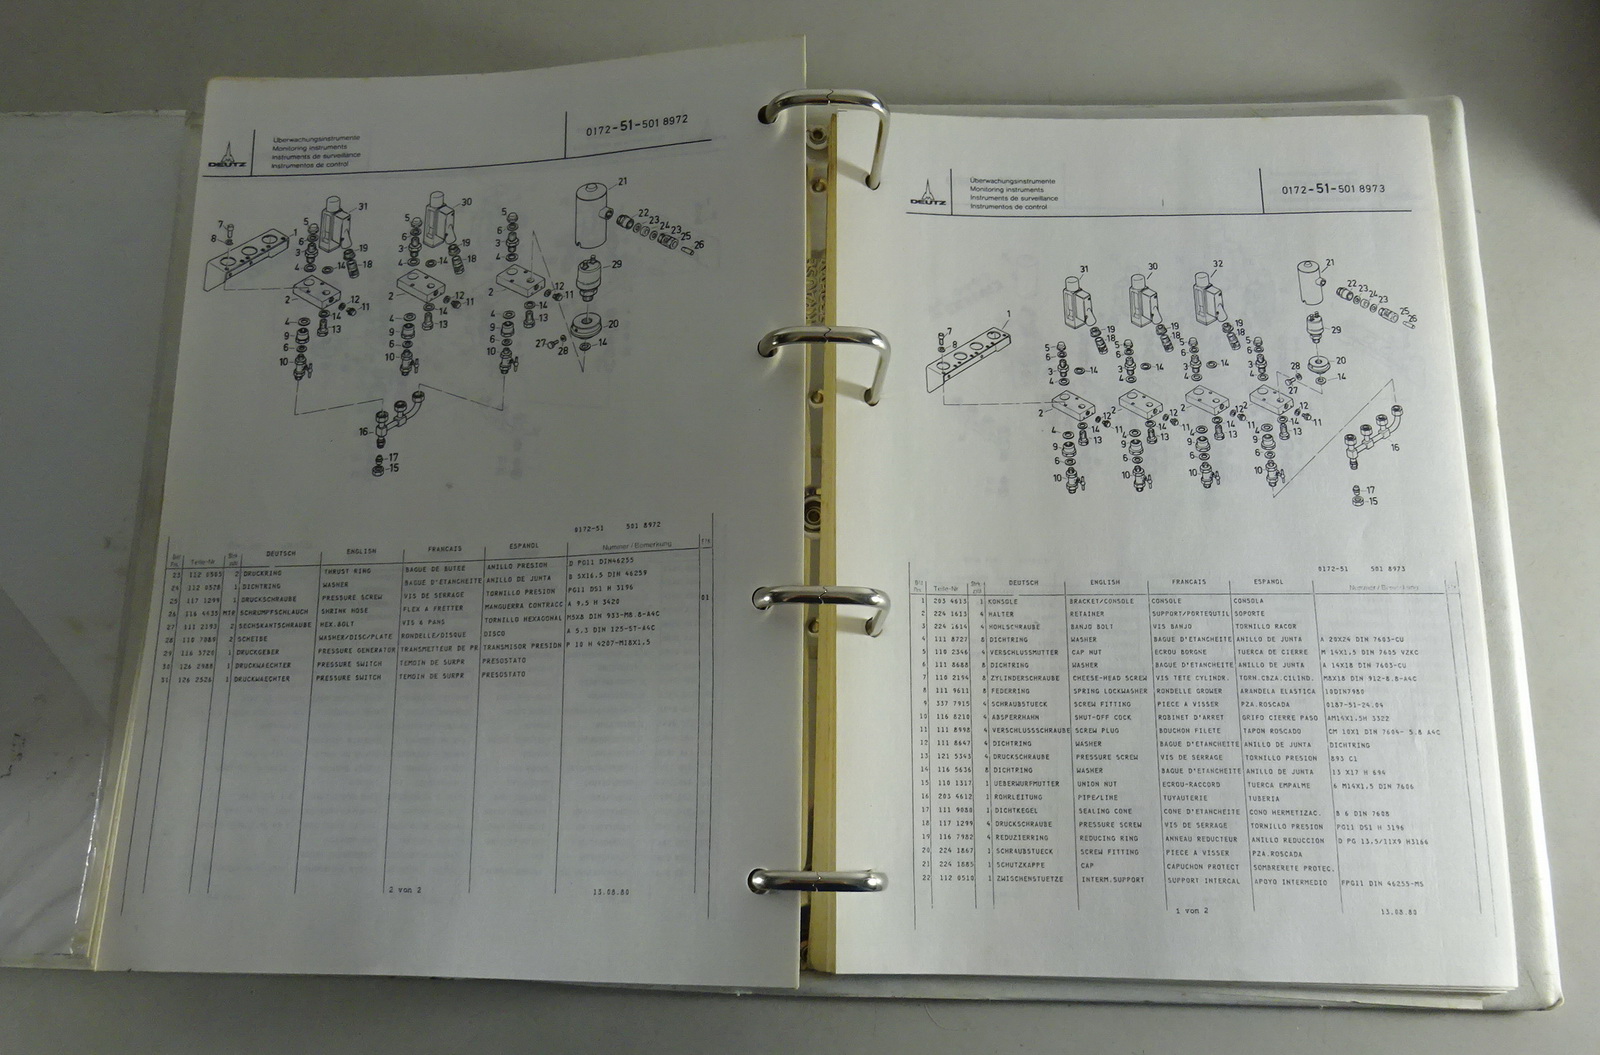 DEUTZ
Überwachungsinstrumente
Monitoring instruments
Instruments de surveillance
Instrumentos de control
0172-51-501 8972
0172-51 501 8972
DEUTSCH ENGLISH FRANCAIS ESPANOL Nummer / Bemerkung
23 112 0583 2 DRUCKRING THRUST RING BAGUE DE BUTEE ANILLO PRESION D PG11 DIN46255
24 112 0578 1 DICHTRING WASHER BAGUE D'ETANCHEITE ANILLO DE JUNTA
25 117 1299 1 DRUCKSCHRAUBE PRESSURE SCREW VIS DE SERRAGE TORNILLO PRESION PG11 DS1 H 3196
26 116 4435 SCHRUMPFSCHLAUCH SHRINK HOSE MANGUERRA CONTRACC A 9.5 H 3420
27 111 2193 2 SECHSKANTSCHRAUBE HEX.BOLT VIS 6 PANS TORNILLO HEXAGONAL M5X8 DIN 933-M8.8-A4C
28 110 7880 2 SCHEIBE WASHER/DISC/PLATE RONDELLE/DISQUE DISCO A 5.3 DIN 125-ST-A4C
29 116 3720 1 DRUCKGEBER PRESSURE GENERATOR TRANSMETTEUR DE PR TRANSMISOR PRESION P 10 H 4207-M18X1.5
30 126 2988 1 DRUCKWAECHTER PRESSURE SWITCH TEMOIN DE SURPR PRESOSTATO
31 126 2526 1 DRUCKWAECHTER PRESSURE SWITCH TEMOIN DE SURPR PRESOSTATO
01
2 von 2 13.08.80
DEUTZ
Überwachungsinstrumente
Monitoring instruments
Instruments de surveillance
Instrumentos de control
0172-51-501 8973
0172-51 501 8973
DEUTSCH ENGLISH FRANCAIS ESPANOL Nummer / Bemerkung
1 203 4613 1 KONSOLE BRACKET/CONSOLE CONSOLE CONSOLA
2 224 1613 4 HALTER RETAINER SUPPORT/PORTEOUTIL SOPORTE
3 224 1614 4 HOHLSCHRAUBE BANJO BOLT VIS BANJO TORNILLO RACOR
4 111 8727 8 DICHTRING WASHER BAGUE D'ETANCHEITE ANILLO DE JUNTA A 20X24 DIN 7603-CU
5 110 2346 4 VERSCHLUSSMUTTER CAP NUT ECROU BORGNE TUERCA DE CIERRE M 14X1.5 DIN 7605 VZKC
6 111 8688 8 DICHTRING WASHER BAGUE D'ETANCHEITE ANILLO DE JUNTA A 14X18 DIN 7603-CU
7 110 2194 8 ZYLINDERSCHRAUBE CHEESE-HEAD SCREW VIS TETE CYLINDR. TORN.CBZA.CILIND. M8X18 DIN 912-8.8-A4C
8 111 9611 8 FEDERRING SPRING LOCKWASHER RONDELLE GROWER ARANDELA ELASTICA 10DIN7980
9 337 7915 4 SCHRAUBSTUECK SCREW FITTING PIECE A VISSER PZA.ROSCADA 0187-51-24.04
10 116 8210 4 ABSPERRHAHN SHUT-OFF COCK ROBINET D'ARRET GRIFO CIERRE PASO AM14X1.5H 3322
11 111 8998 4 VERSCHLUSSSCHRAUBE SCREW PLUG BOUCHON FILETE TAPON ROSCADO CM 10X1 DIN 7604- 5.8 A4C
12 111 8647 4 DICHTRING WASHER BAGUE D'ETANCHEITE ANILLO DE JUNTA DICHTRING
13 121 5343 4 DRUCKSCHRAUBE PRESSURE SCREW VIS DE SERRAGE TORNILLO PRESION 893 C1
14 116 5636 8 DICHTRING WASHER BAGUE D'ETANCHEITE ANILLO DE JUNTA 13 X17 H 694
15 110 1317 1 UEBERWURFMUTTER UNION NUT ECROU-RACCORD TUERCA EMPALME 6 M14X1.5 DIN 7606
16 203 4612 1 ROHRLEITUNG PIPE/LINE TUYAUTERIE TUBERIA
17 111 9080 1 DICHTKEGEL SEALING CONE CONE D'ETANCHEITE CONO HERMETIZAC. B 6 DIN 7608
18 117 1299 4 DRUCKSCHRAUBE PRESSURE SCREW VIS DE SERRAGE TORNILLO PRESION PG11 DS1 H 3196
19 116 7982 4 REDUZIERRING REDUCING RING ANNEAU REDUCTEUR ANILLO REDUCCION D PG 13.5/11X9 H3164
20 224 1867 1 SCHRAUBSTUECK SCREW FITTING PIECE A VISSER PZA.ROSCADA
21 224 1885 1 SCHUTZKAPPE CAP CAPUCHON PROTECT SOMBRERETE PROTEC.
22 112 0510 1 ZWISCHENSTUETZE INTERM.SUPPORT SUPPORT INTERCAL APOYO INTERMEDIO FPG11 DIN 46255-MS
1 von 2 13.08.80